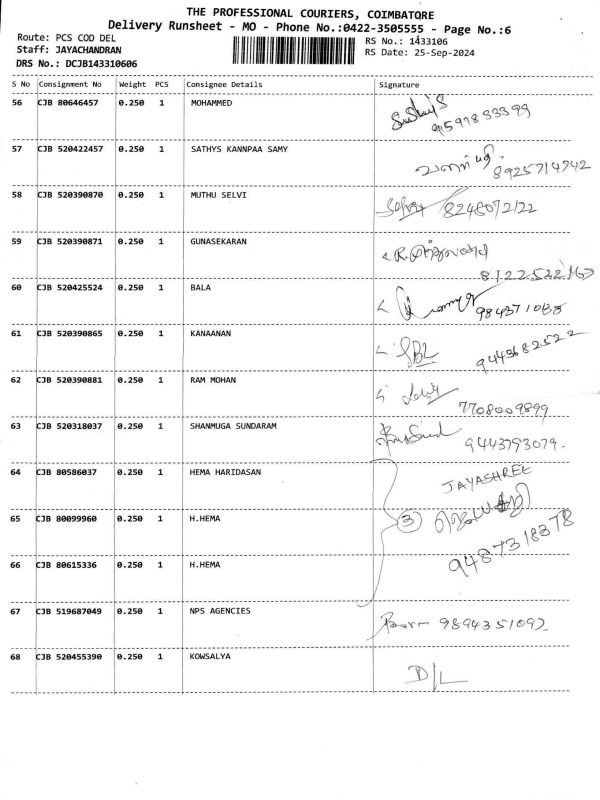 THE PROFESSIONAL COURIERS, COIMBATORE
Delivery Runsheet - MO - Phone No.:0422-3505555 - Page No.:6
Route: PCS COD DEL
Staff: JAYACHANDRAN
DRS No.: DCJB143310606
RS No.: 1433106
RS Date: 25-Sep-2024
S No Consignment No Weight PCS Consignee Details Signature
56 CJB 80646457 0.250 1 MOHAMMED
57 CJB 520422457 0.250 1 SATHYS KANNPAA SAMY
8925714742
58 CJB 520390870 0.250 1 MUTHU SELVI 8248072122
59 CJB 520390871 0.250 1 GUNASEKARAN
60 CJB 520425524 0.250 1 BALA
61 CJB 520390865 0.250 1 KANAANAN
9443682522
62 CJB 520390881 0.250 1 RAM MOHAN
7708009899
63 CJB 520318037 0.250 1 SHANMUGA SUNDARAM
9443793079
64 CJB 80586037 0.250 1 HEMA HARIDASAN JAYASHREE
65 CJB 80099960 0.250 1 H.HEMA 3
9487318378
66 CJB 80615336 0.250 1 H.HEMA
67 CJB 519687049 0.250 1 NPS AGENCIES
68 CJB 520455390 0.250 1 KOWSALYA D/L